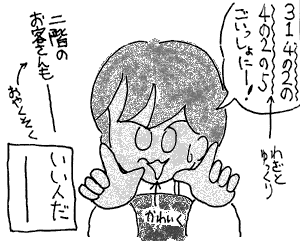 ３１４の２の
４の２の５
ごいっしょにー！
わざと
ゆっくり
二階の
お客さんも
おやくそく
いい人だ
かわいく